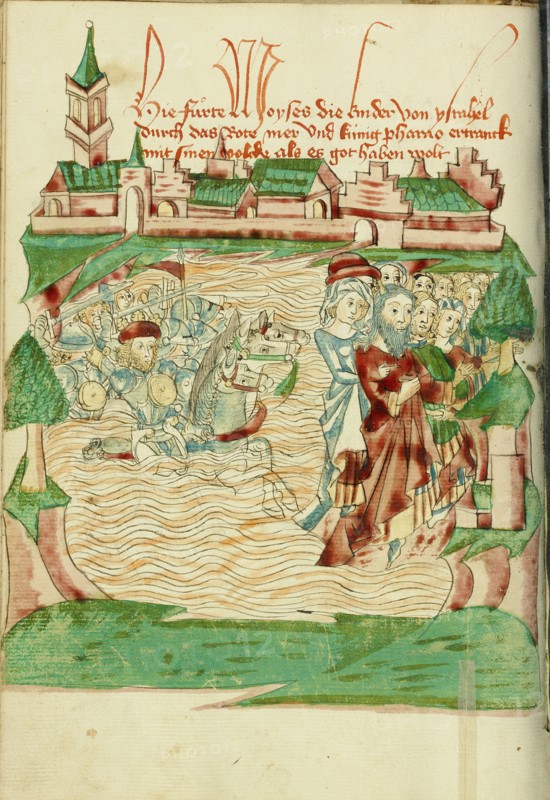 Hie fuͦrte Moyses die kinder von ysrahel
durch das Rote mer vnd kúnig pharao ertranck
mit sinen volcke als es got haben wolt